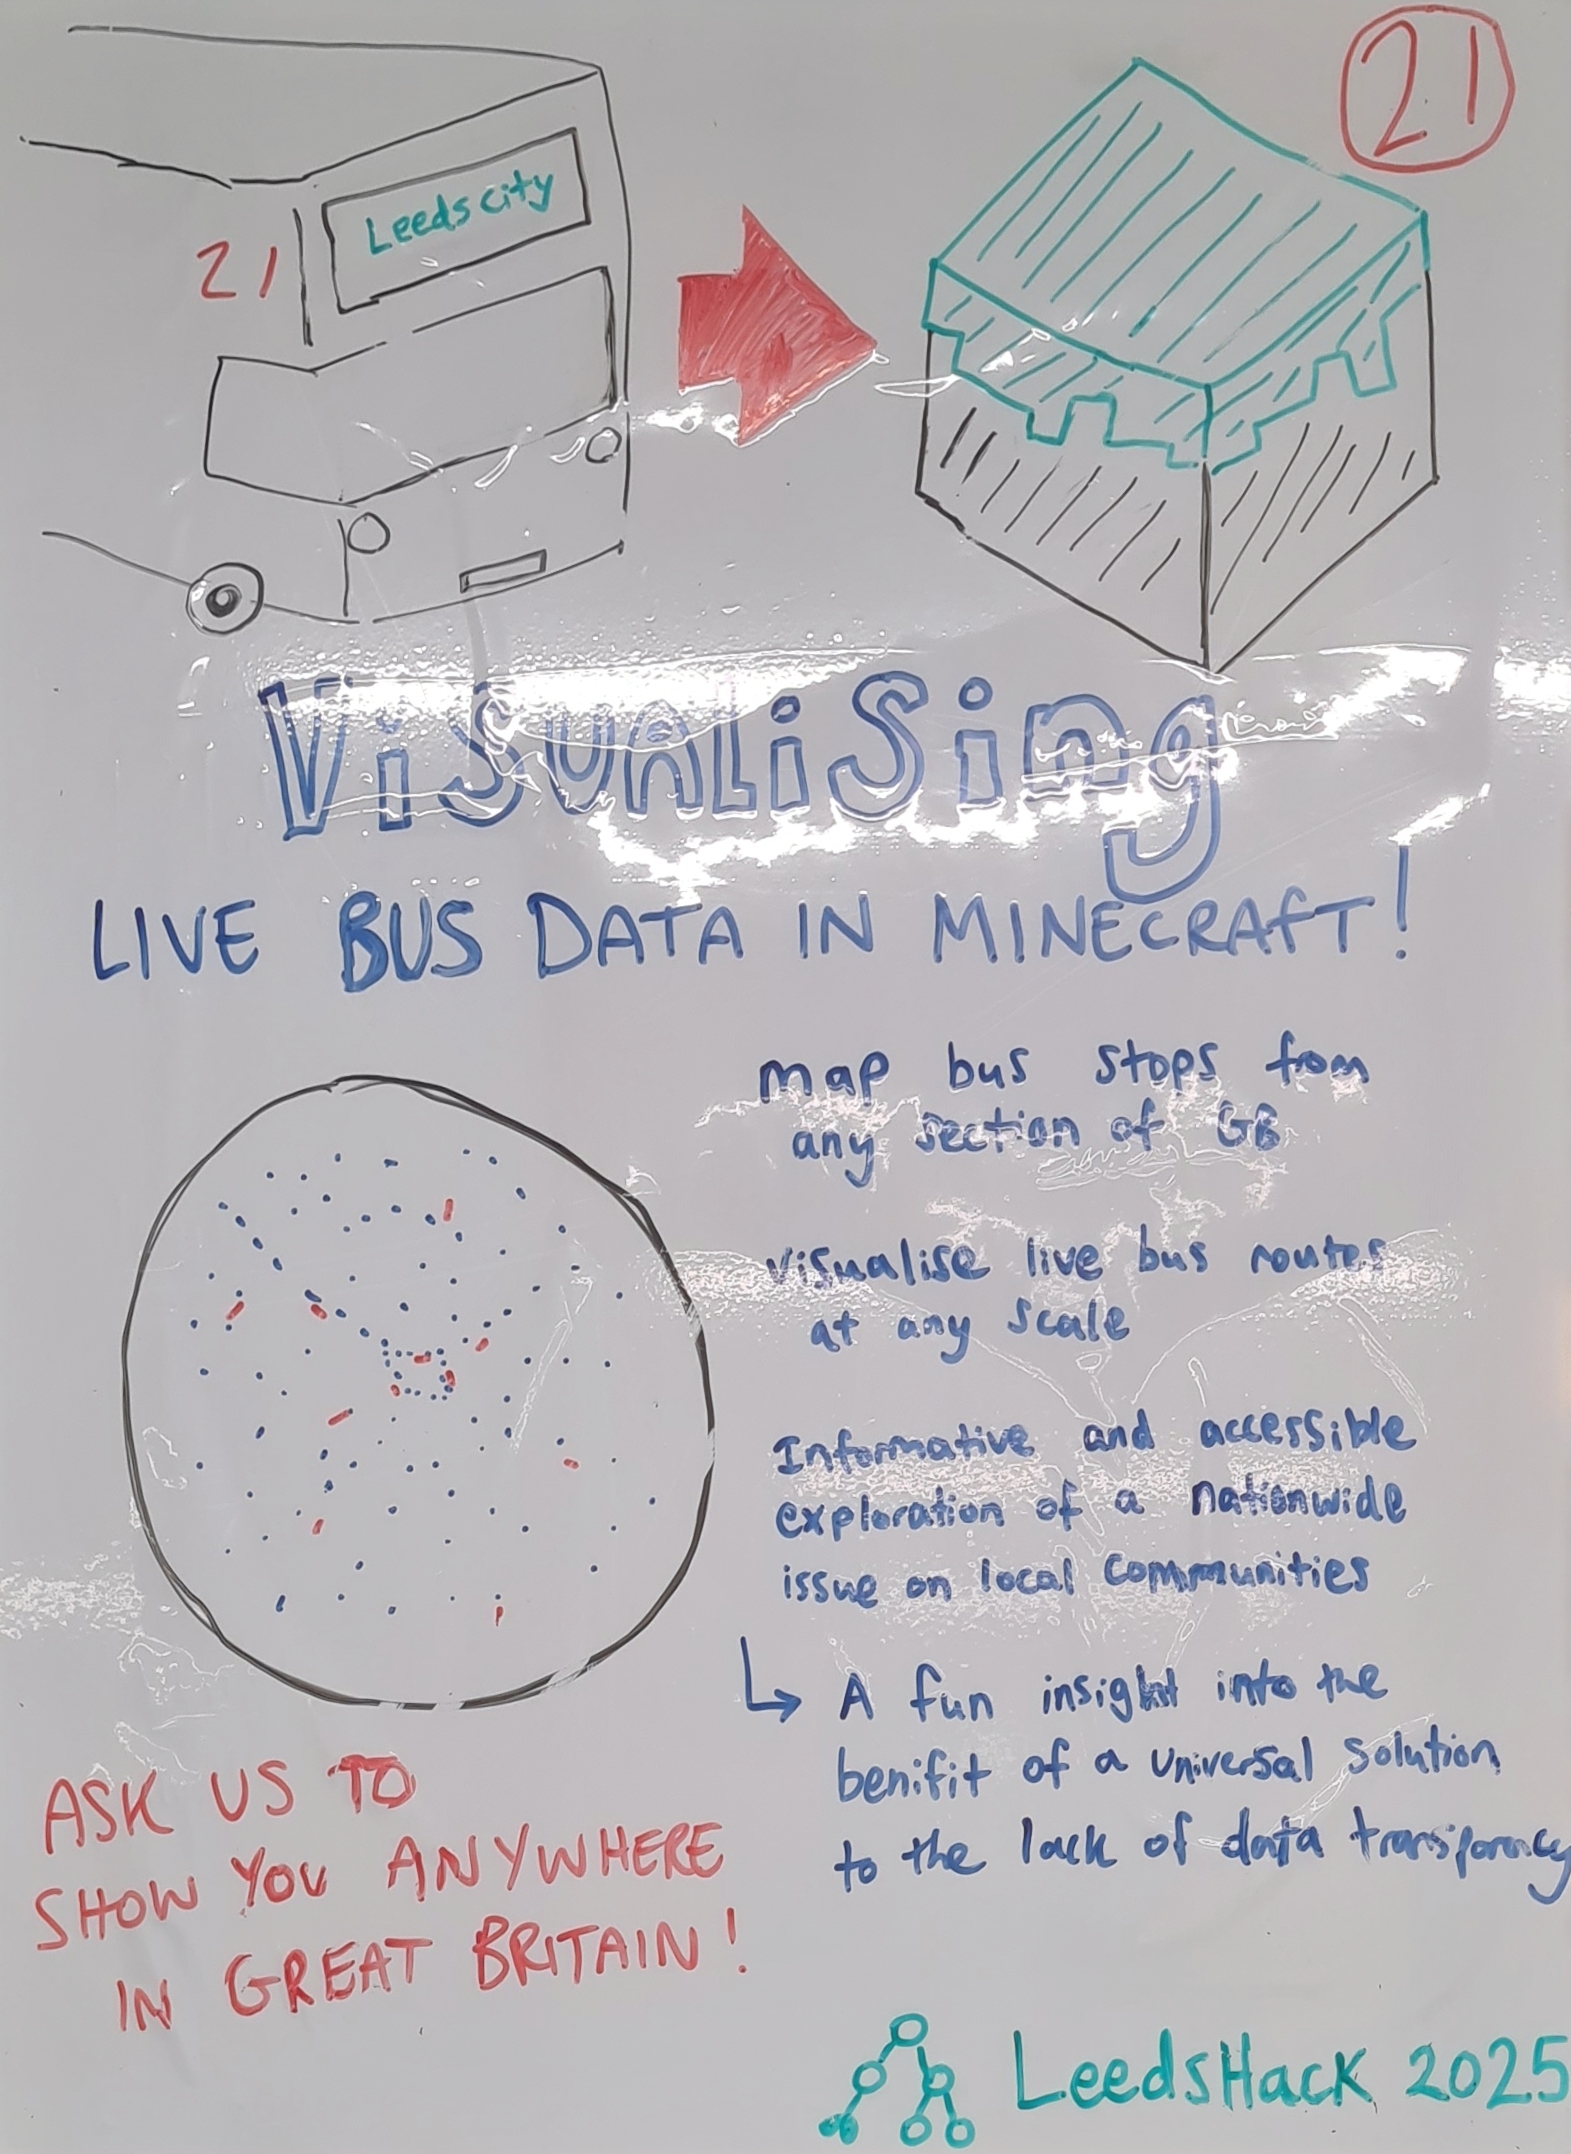 21
Leeds city
21
Visualising
LIVE BUS DATA IN MINECRAFT!
map bus stops from
any section of GB
visualise live bus routes
at any scale
Informative and accessible
exploration of a nationwide
issue on local communities
↳ A fun insight into the
benifit of a universal solution
to the lack of data transparency
ASK US TO
SHOW YOU ANYWHERE
IN GREAT BRITAIN!
LeedsHack 2025